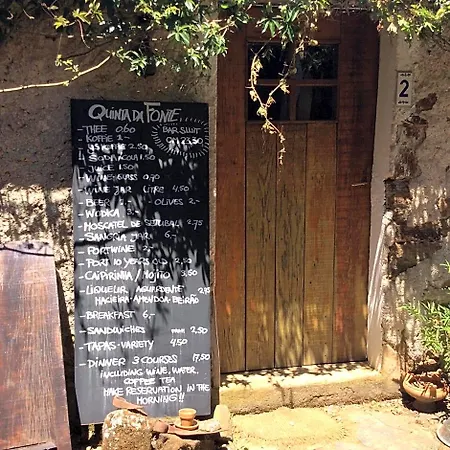 QUINTA DA FONTE
BAR SLUIT
OM 23.30
- THEE 0.60
- KOFFIE 1.-
2.50
- SODA COLA 1.50
- JUICE 1.50
- WINE GLASS 0.70
- WINE JAR LITRE 4.50
- BEER OLIVES 2.-
- WODKA 2.-
- MOSCATEL DE SETUBAL 2.75
- SANGRIA JAR 6.-
- PORTWINE 2.-
- PORT 10 YEARS OLD 2.50
- CAIPIRINHA / MOJITO 3.50
- LIQUEUR, AGUARDENTE 2.75
MACIEIRA - AMENDOA - BEIRÃO
- BREAKFAST 6.-
- SANDWICHES FROM 2.50
- TAPAS - VARIETY 4.50
- DINNER 3 COURSES 17.50
INCLUDING WINE, WATER,
COFFEE TEA
MAKE RESERVATION IN THE
MORNING!!
2